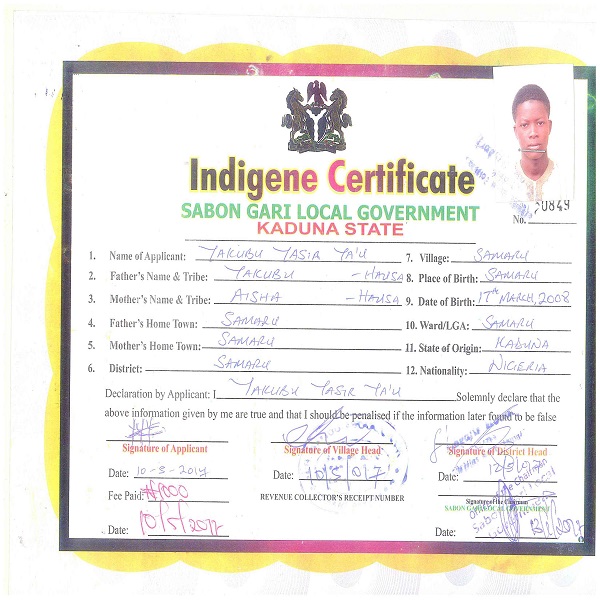 Indigene Certificate
SABON GARI LOCAL GOVERNMENT
KADUNA STATE
No. 0849
1. Name of Applicant: YAKUBU YASIR YA'U 7. Village: SAMARU
2. Father's Name & Tribe: YAKUBU - HAUSA 8. Place of Birth: SAMARU
3. Mother's Name & Tribe: AISHA - HAUSA 9. Date of Birth: 17TH MARCH, 2008
4. Father's Home Town: SAMARU 10. Ward/LGA: SAMARU
5. Mother's Home Town: SAMARU 11. State of Origin: KADUNA
6. District: SAMARU 12. Nationality: NIGERIA
Declaration by Applicant: I YAKUBU YASIR YA'U Solemnly declare that the
above information given by me are true and that I should be penalised if the information later found to be false
Signature of Applicant Signature of Village Head Signature of District Head
Date: 10-5-2017 Date: 10/5/017 Date:
Fee Paid: REVENUE COLLECTOR'S RECEIPT NUMBER Signature of the Chairman
SABON GARI LOCAL GOVERNMENT
Date: 10/5/2017 Date: